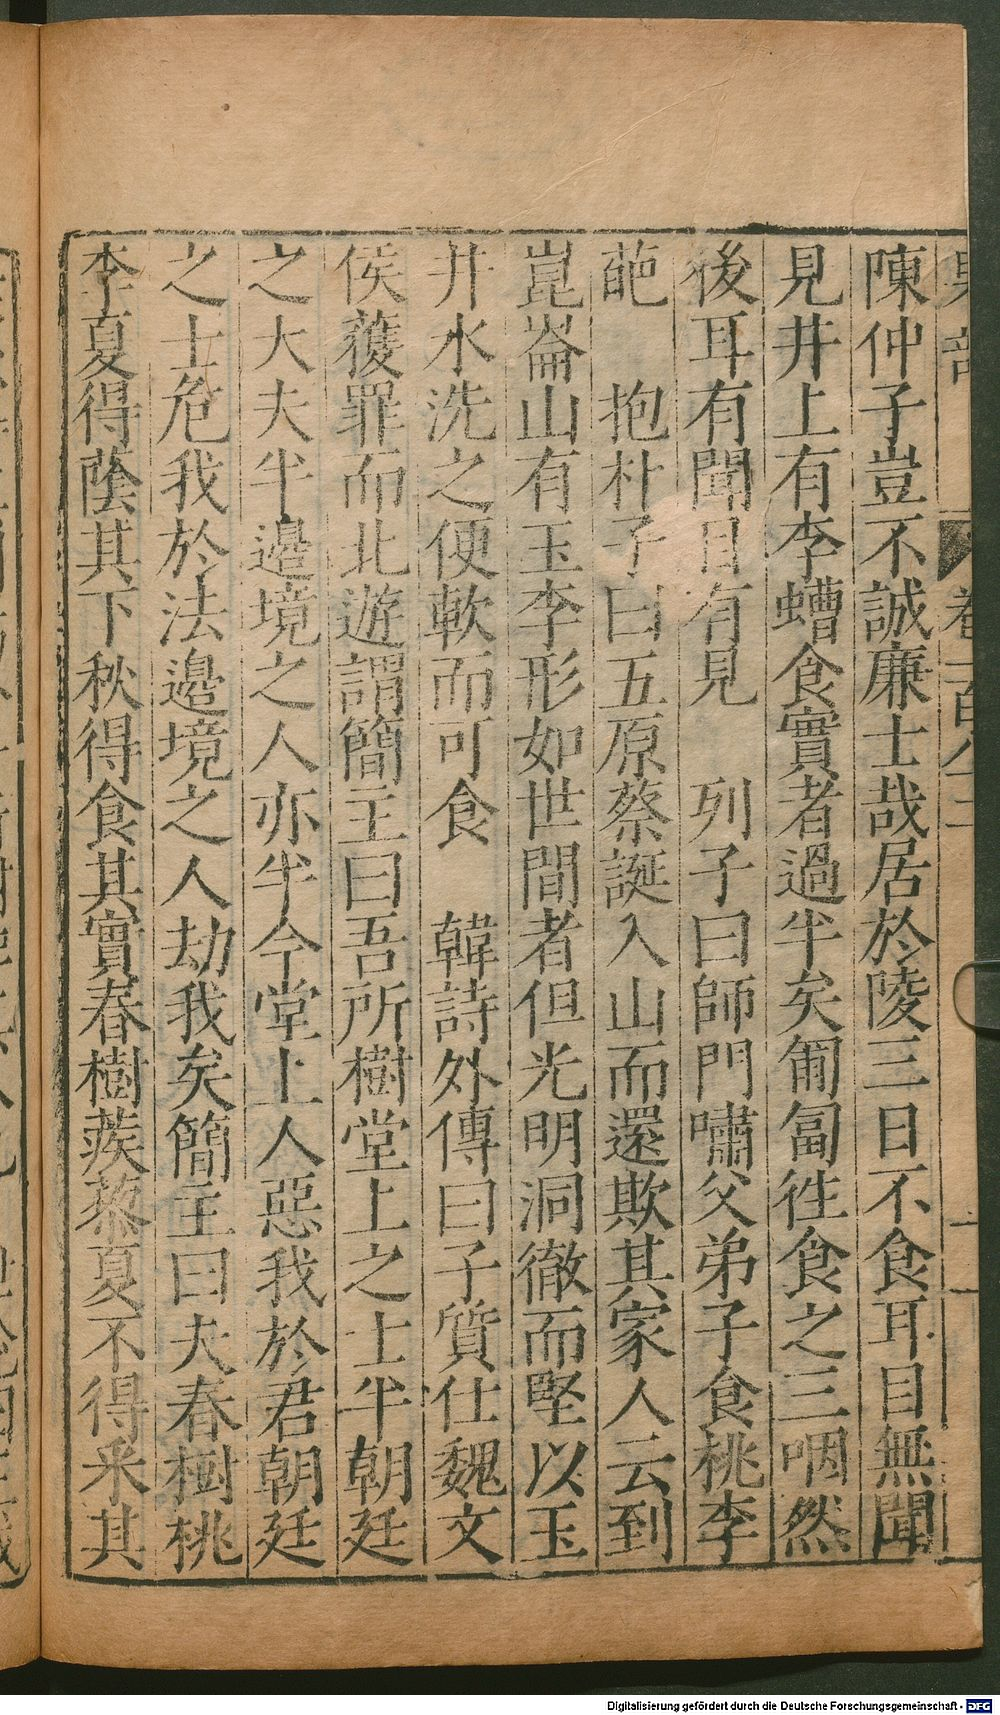 陳仲子豈不誠廉士哉居於陵三日不食耳目無聞
見井上有李螬食實者過半矣匍匐徃食之三咽然
後耳有聞目有見　列子曰師門嘯父弟子食桃李
葩　抱朴子曰五原蔡誕入山而還欺其家人云到
崑崙山有玉李形如世間者但光明洞徹而堅以玉
井水洗之便軟而可食　韓詩外傳曰子質仕魏文
侯獲罪而北遊謂簡主曰吾所樹堂上之士半朝廷
之大夫半邉境之人亦半今堂上人惡我於君朝廷
之士危我於法邉境之人劫我矣簡主曰夫春樹桃
李夏得蔭其下秋得食其實春樹蒺藜夏不得采其
Digitalisierung gefördert durch die Deutsche Forschungsgemeinschaft - DFG